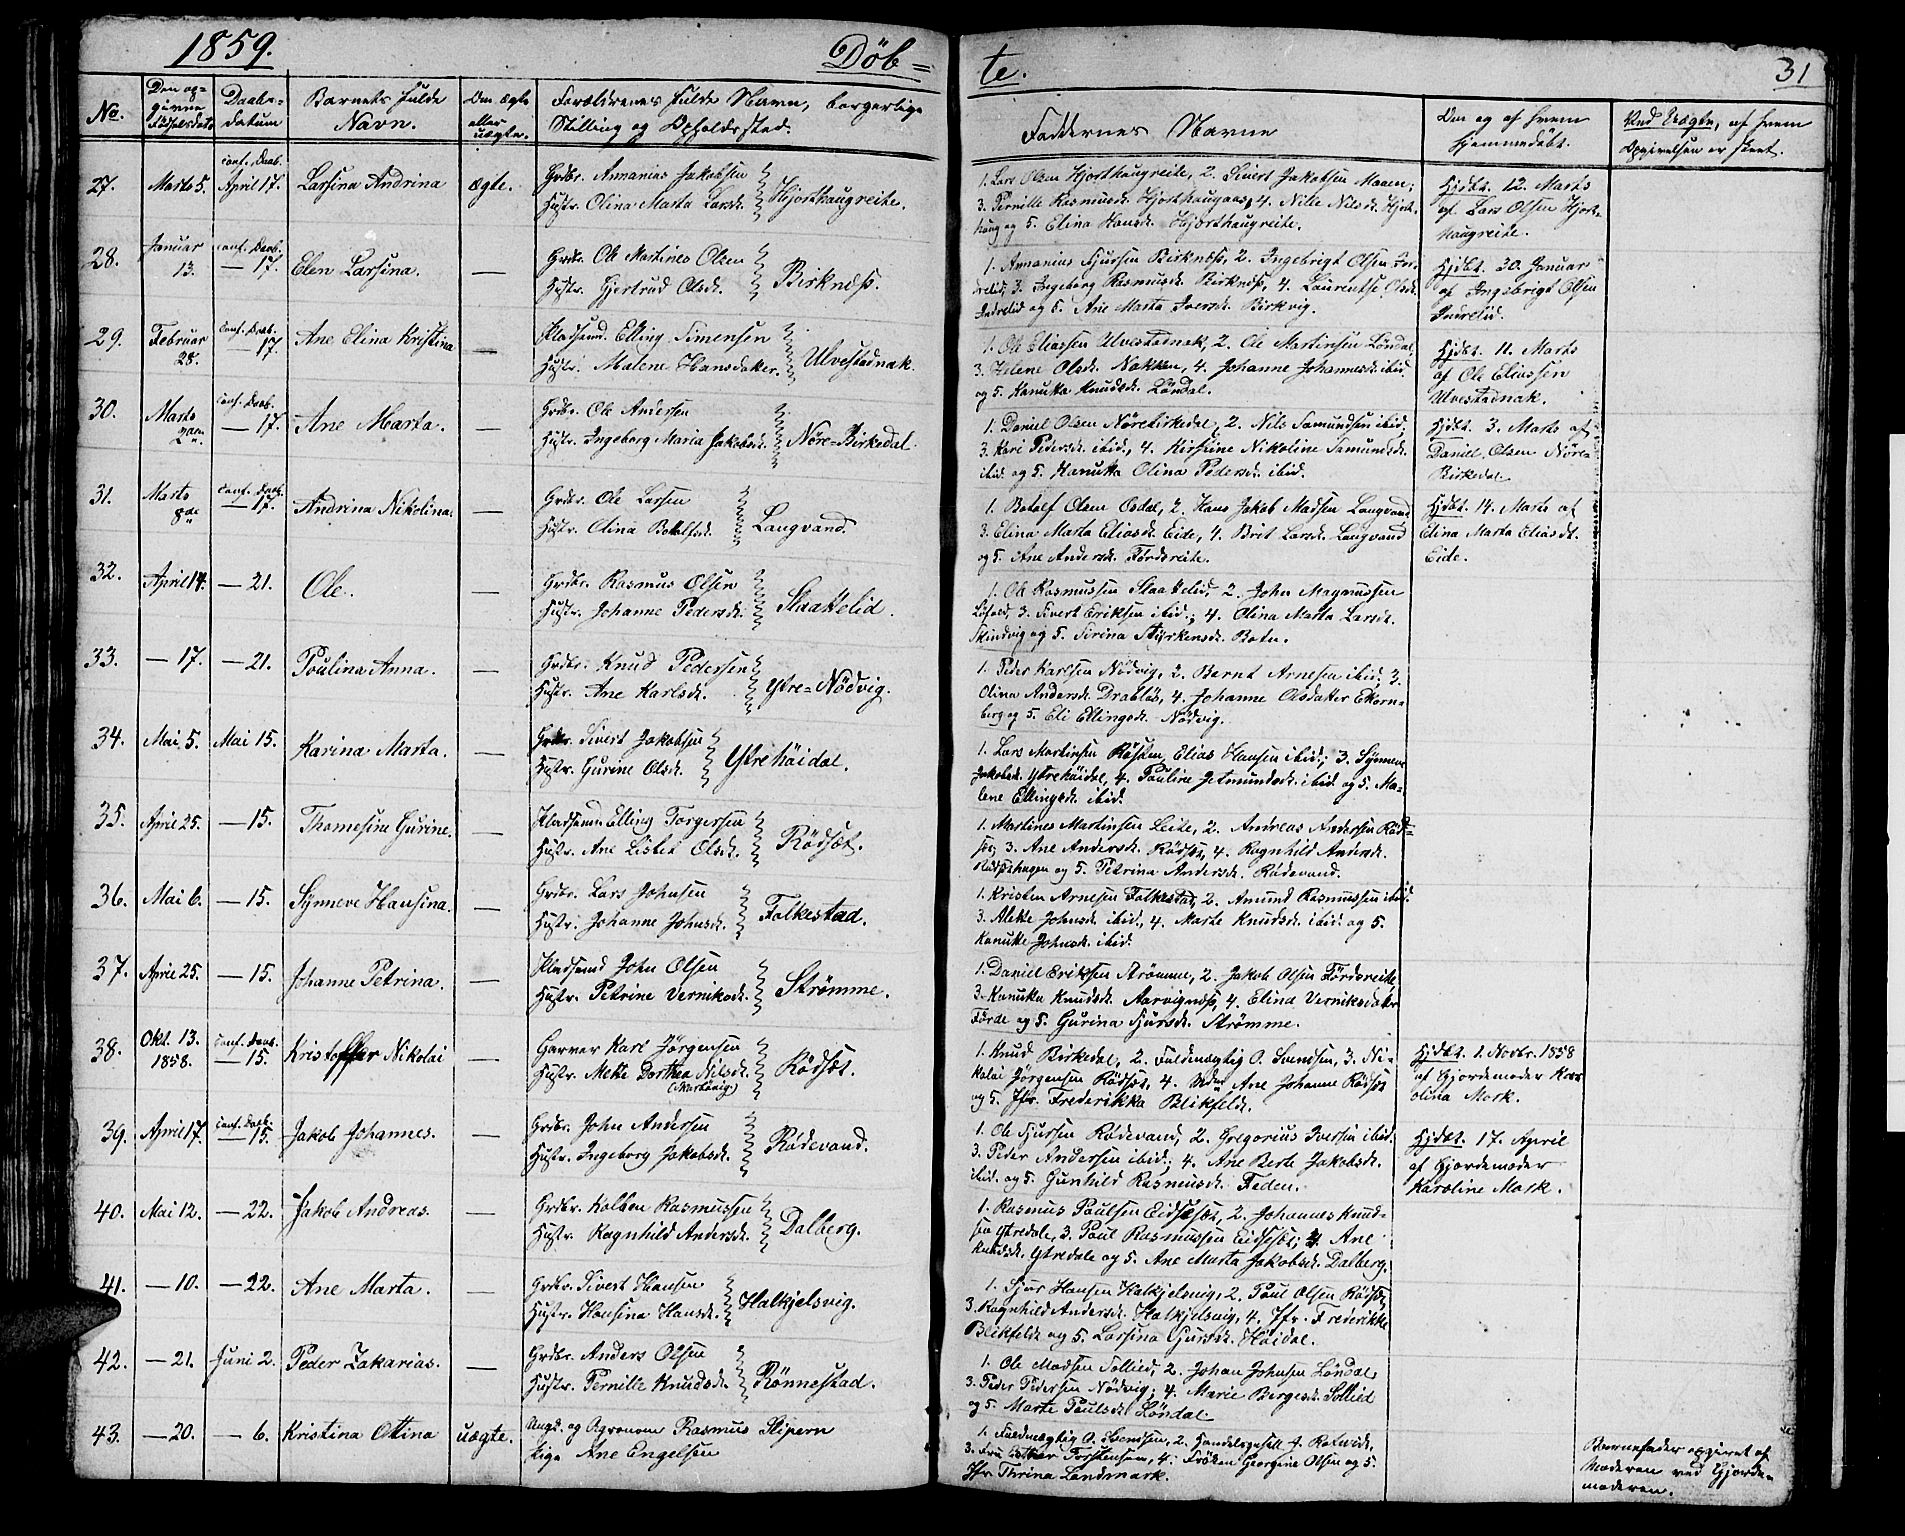 1859.
Döb=
te.
31
No.
Den op=
givne
Fødselsdato
Daabs=
datum
Barnets fulde
Navn.
Om ægte
eller
uægte.
Forældrenes fulde Navn, borgerlige
Stilling og Opholdssted.
Faddernes Navne
Om og af hvem
hjemmedøbt.
Ved Uægte, af hvem
Opgivelsen er skeet.
27.
Marts 5.
conf. Daab.
April 17.
Larsina Andrina
ægte.
Grdbr. Ananias Jakobsen
Hustr. Olina Marta Larsdr.
Hjorthaugreite.
1. Lars Olsen Hjorthaugreite, 2. Sivert Jakobsen Maaen;
3. Pernille Rasmusdr. Hjorthaugaas, 4. Nille Nilsdr. Hjort-
haug og 5. Elina Hansdr. Hjorthaugreite.
Hjdbt. 12. Marts
af Lars Olsen Hjort-
haugreite.
28.
Januar
13.
conf. Daab.
— 17.
Elen Larsina.
—
Grdbr. Ole Martines Olsen
Hustr. Gjertrud Olsdr.
Birknæss.
1. Annanias Sjursen Birknæss, 2. Ingebrigt Olsen In-
drelid; 3. Ingeborg Rasmusdr. Birknæss, 4. Laurentse Olsdr.
Indrelid og 5. Ane Marta Iversdr. Birkvig.
Hjdbt. 30. Januar
af Ingebrigt Olsen
Indrelid.
29.
Februar
28.
Conf. Daab.
— 17.
Ane Elina Kristina
—
Pladsmd. Elling Simensen
Hustr. Malene Hansdatter.
Ulvestadnak.
1. Ole Eliassen Ulvestadnak, 2. Ole Martinsen Löndal,
3. Helene Olsdr. Nakken, 4. Johanne Johannesdr. ibid.
og 5. Hanukka Knudsdr. Löndal.
Hjdbt. 11. Marts
af Ole Eliassen
Ulvestadnak.
30.
Marts
2den
Conf. Daab.
— 17.
Ane Marta.
—
Grdbr. Ole Andersen
Hustr. Ingeborg Maria Jakobsdr.
Nøre-Birkedal.
1. Daniel Olsen Nørebirkedal, 2. Nils Samundsen ibid;
3. Kari Pedersdr. ibid., 4. Kirstine Nikoline Samundsdr.
ibid. og 5. Hanukka Olina Pedersdr. ibid.
Hjdbt. 3. Marts af
Daniel Olsen Nøre
Birkedal.
31.
Marts
8de
Conf. Daab.
— 17.
Andrina Nikolina.
—
Grdbr. Ole Larsen
Hustr. Olina Botolfsdr.
Langvand.
1. Botolf Olsen Osdal, 2. Hans Jakob Madsen Langvand
3. Elina Marta Eliasdr. Eide, 4. Brit Larsdr. Langvand
og 5. Ane Andersdr. Fördsreite.
Hjdbt. 14. Marts af
Elina Marta Eliasdr.
Eide.
32.
April 14.
— 21.
Ole.
—
Grdbr. Rasmus Olsen
Hustr. Johanne Pedersdr.
Slaattelid.
1. Ole Rasmussen Slaattelid, 2. John Magnussen
3. Sivert Eriksen ibid.; 4. Olina Marta Larsdr.
Skindvig og 5. Serina Styrkensdr. Botn.
33.
— 17.
— 21.
Poulina Anna.
—
Grdbr. Knud Pedersen
Hustr. Ane Karlsdr.
Ytre=Nödvig.
1. Peder Karlsen Nödvig, 2. Bernt Arnesen ibid; 3.
Olina Andersdr. Drabløs, 4. Johanne Olsdatter Ekorn-
berg og 5. Eli Ellingsdr. Nødvig.
34.
Mai. 5.
Mai 15.
Karina Marta.
—
Grdbr. Sivert Jakobsen
Hustr. Gurine Olsdr.
Ytrehöidal.
1. Lars Martinsen Elias Hansen ibid.; 3. Synneve
Jakobsdr. Ytrehöidal, 4. Pauline Jetmundsdr. ibid. og 5. Ma-
lene Ellingsdr. ibid.
35.
April 25.
— 15.
Thomesine Gurine.
—
Pladsmd. Elling Torgersen
Hustr. Ane Lisbet Olsdr.
Rödsæt.
1. Martines Martinsen Leite, 2. Andreas Andersen Röd-
set; 3. Ane Andersdr. Rödset, 4. Ragnhild Andersdr.
Rødsethagen og 5. Petrina Andersdr. Rødevand.
36.
Mai 6.
— 15.
Synneve Hansina.
—
Grdbr. Lars Johnsen
Hustr. Johanne Johnsdr.
Folkestad.
1. Kristen Arnesen Folkestad, 2. Amund Rasmussen ibid.
3. Alette Johnsdr. ibid., 4. Marte Knudsdr. ibid. og 5.
Hanukke Johnsdr. ibid.
37.
April 25.
— 15.
Johanne Petrina.
—
Pladsmd John Olsen
Hustr. Petrine Verniksdr.
Strömme.
1. Daniel Eriksen Strömme, 2. Jakob Olsen Fördsreite,
3. Hanukka Knudsdr. Aarvignæss, 4. Elina Verniksdatter
Förde og 5. Gurina Sjursdr. Strømme.
38.
Okt. 13.
1858.
Conf. Daab.
— 15.
Kristoffer Nikolai
—
Garver Karl Jörgensen
Hustr. Mette Dorthea Nilsdr.
Rödsæt.
1. Knud Birkedal, 2. Fuldmægtig O. Svendsen, 3. Ni-
kolai Jörgensen Rödsæt, 4. Mdm Ane Johanne Rödset
og 5. Jfr. Frederikka Blikfeldt.
Hjdbt. 1. Novbr. 1858
af Gjordemoder Kar
olina Mork.
39.
April 17.
Conf. Daab.
— 15.
Jakob Johannes.
—
Grdbr. John Andersen
Hustr. Ingeborg Jakobsdr.
Rödevand.
1. Ole Sjursen Rödevand, 2. Gregorius Iversen ibid.
3. Peder Andersen ibid.; 4. Ane Berte Jakobsdr.
ibid. og 5. Gunhild Rasmusdr. Feden.
Hjdbt. 17. April
af Gjordemoder
Karoline Mork.
40.
Mai 12.
— 22.
Jakob Andreas.
—
Grdbr. Kolben Rasmussen
Hustr. Ragnhild Andersdr.
Dalberg.
1. Rasmus Paulsen Eidseset, 2. Johannes Knud-
sen Ytredale, 3. Paul Rasmussen Eidseset; 4. Ane
Knudsdr. Ytredale og 5. Ane Marta Jakobsdr. Dalberg.
41.
— 10.
— 22.
Ane Marta.
—
Grdbr. Sivert Hansen
Hustr. Hansina Hansdr.
Halkjelsvig.
1. Sjur Hansen Halkjelsvig, 2. Paul Olsen Rödset,
3. Ragnhild Andersdr. Halkjelsvig, 4. Jfr. Frederikke
Blikfeldt og 5. Larsina Sjursdr. Höidal.
42.
— 21.
Juni 2.
Peder Zakarias.
—
Grdbr. Anders Olsen
Hustr. Pernille Knudsdr.
Rönnestad.
1. Ole Madsen Sollied, 2. Johan Johnsen Löndal,
3. Peder Pedersen Nödvig; 4. Marie Bergesdr. Sollied
og 5. Marte Paulsdr. Löndal.
43.
— 20.
— 6.
Kristina Ottina
uægte.
Ungk. og Agronom Rasmus Stipern
Pige Ane Engelsen
1. Fuldmægtig O. Svendsen, 2. Handelsfull. J. Ratvik,
3. Fru Torstensen, 4. Frøken Georgine Olsen og 5.
Jfr. Thrina Landmark.
Barnefader opgivet af
Moderen ved Gjorde-
moderen.